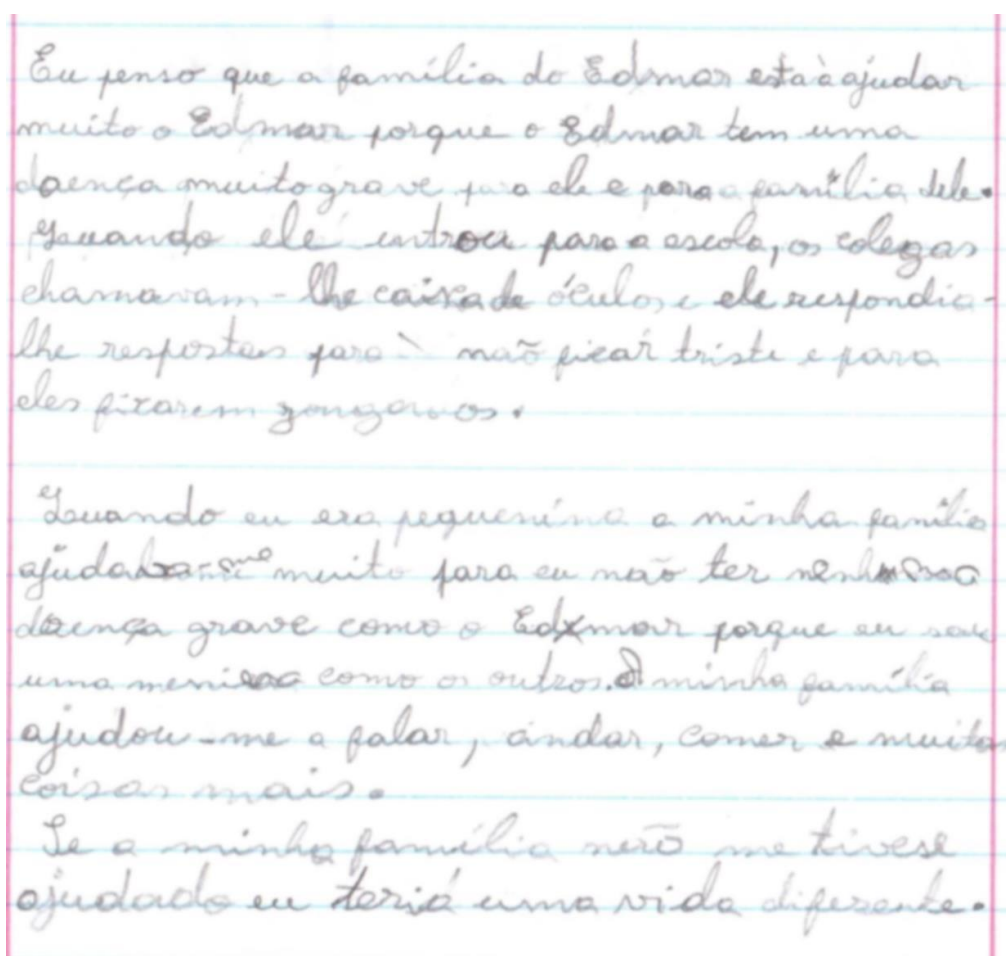 Eu penso que a família do Edmar está à ajudar
muito o Edmar porque o Edmar tem uma
doença muito grave para ele e para a família dele.
Quando ele entrou para a escola, os colegas
chamavam-lhe caixa de óculos e ele respondia-
lhe respostas para não ficar triste e para
eles ficarem zangados.
Quando eu era pequenina a minha família
ajudava-me muito para eu não ter nenhuma
doença grave como o Edmar porque eu sou
uma menina como os outros. A minha família
ajudou-me a falar, andar, comer e muitas
coisas mais.
Se a minha família não me tivese
ajudado eu teria uma vida diferente.